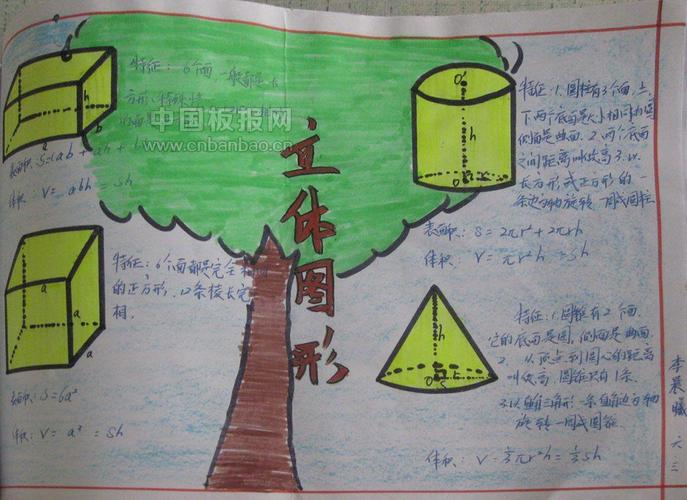 特征：6个面一般都是长
方形，特殊情
中国板报网
www.cnbanbao.cn
h
a
b
体积：V = abh = Sh
立体图形
特征：6个面都是完全相同
的正方形，12条棱长完
相
a
a
a
表面积：S=6a²
体积：V = a³ = Sh
O
h
O
特征：1.圆柱有3个面,上
下两个底面是大小相同的圆
侧面是曲面 2.两个底面
之间距离叫做高 3.以
长方形或正方形的一
条边为轴旋转一周成圆柱
表面积：S = 2πr² + 2πrh
体积：V = πr²h = Sh
h
O
r
特征：1.圆锥有2个面
它的底面是圆，侧面是曲面
2. 从顶点到圆心的距离
叫做高，圆锥只有1条
3.以直角三角形一条直角边为轴
旋转一周成圆锥
体积：V = ⅓πr²h = ⅓Sh
六三